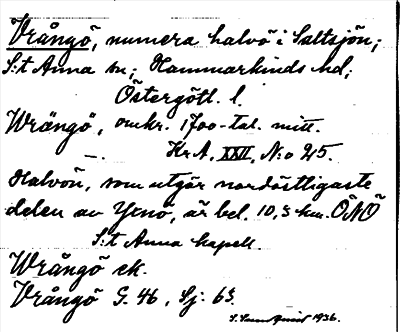 Vrångö, numera halvö i Saltsjön;
S:t Anna sn; Hammarkinds hd;
Östergötl. l.
Wrångö, omkr. 1700-tal. mitt.
—. Kr A, XXII, N:o 25.
Halvön, som utgör nordöstligaste
delen av Yxnö, är bel. 10,3 km. ÖNÖ
S:t Anna kapell.
Wrångö ek.
Vrångö G. 46, Sj: 63.
1936.